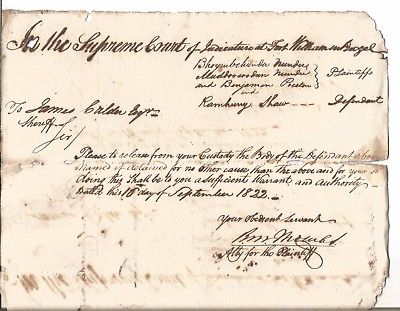 In the Supreme Court of Judicature at Fort William in Bengal
Bhoyrubchunder Mundu
Muddoosoodun Mundu } Plaintiffs
and Benjamin Preston
and
Ramhurry Shaw — Defendant
To James Calder Esqr.
Sheriff
Sir
Please to release from your Custody the Body of the Defendant above
Named if detained for no other cause than the above and for your so
doing this Shall be to you a sufficient Warrant and Authority
Dated this 16 day of September 1822.
Your Obedient Servant
Atty for the Plaintiff